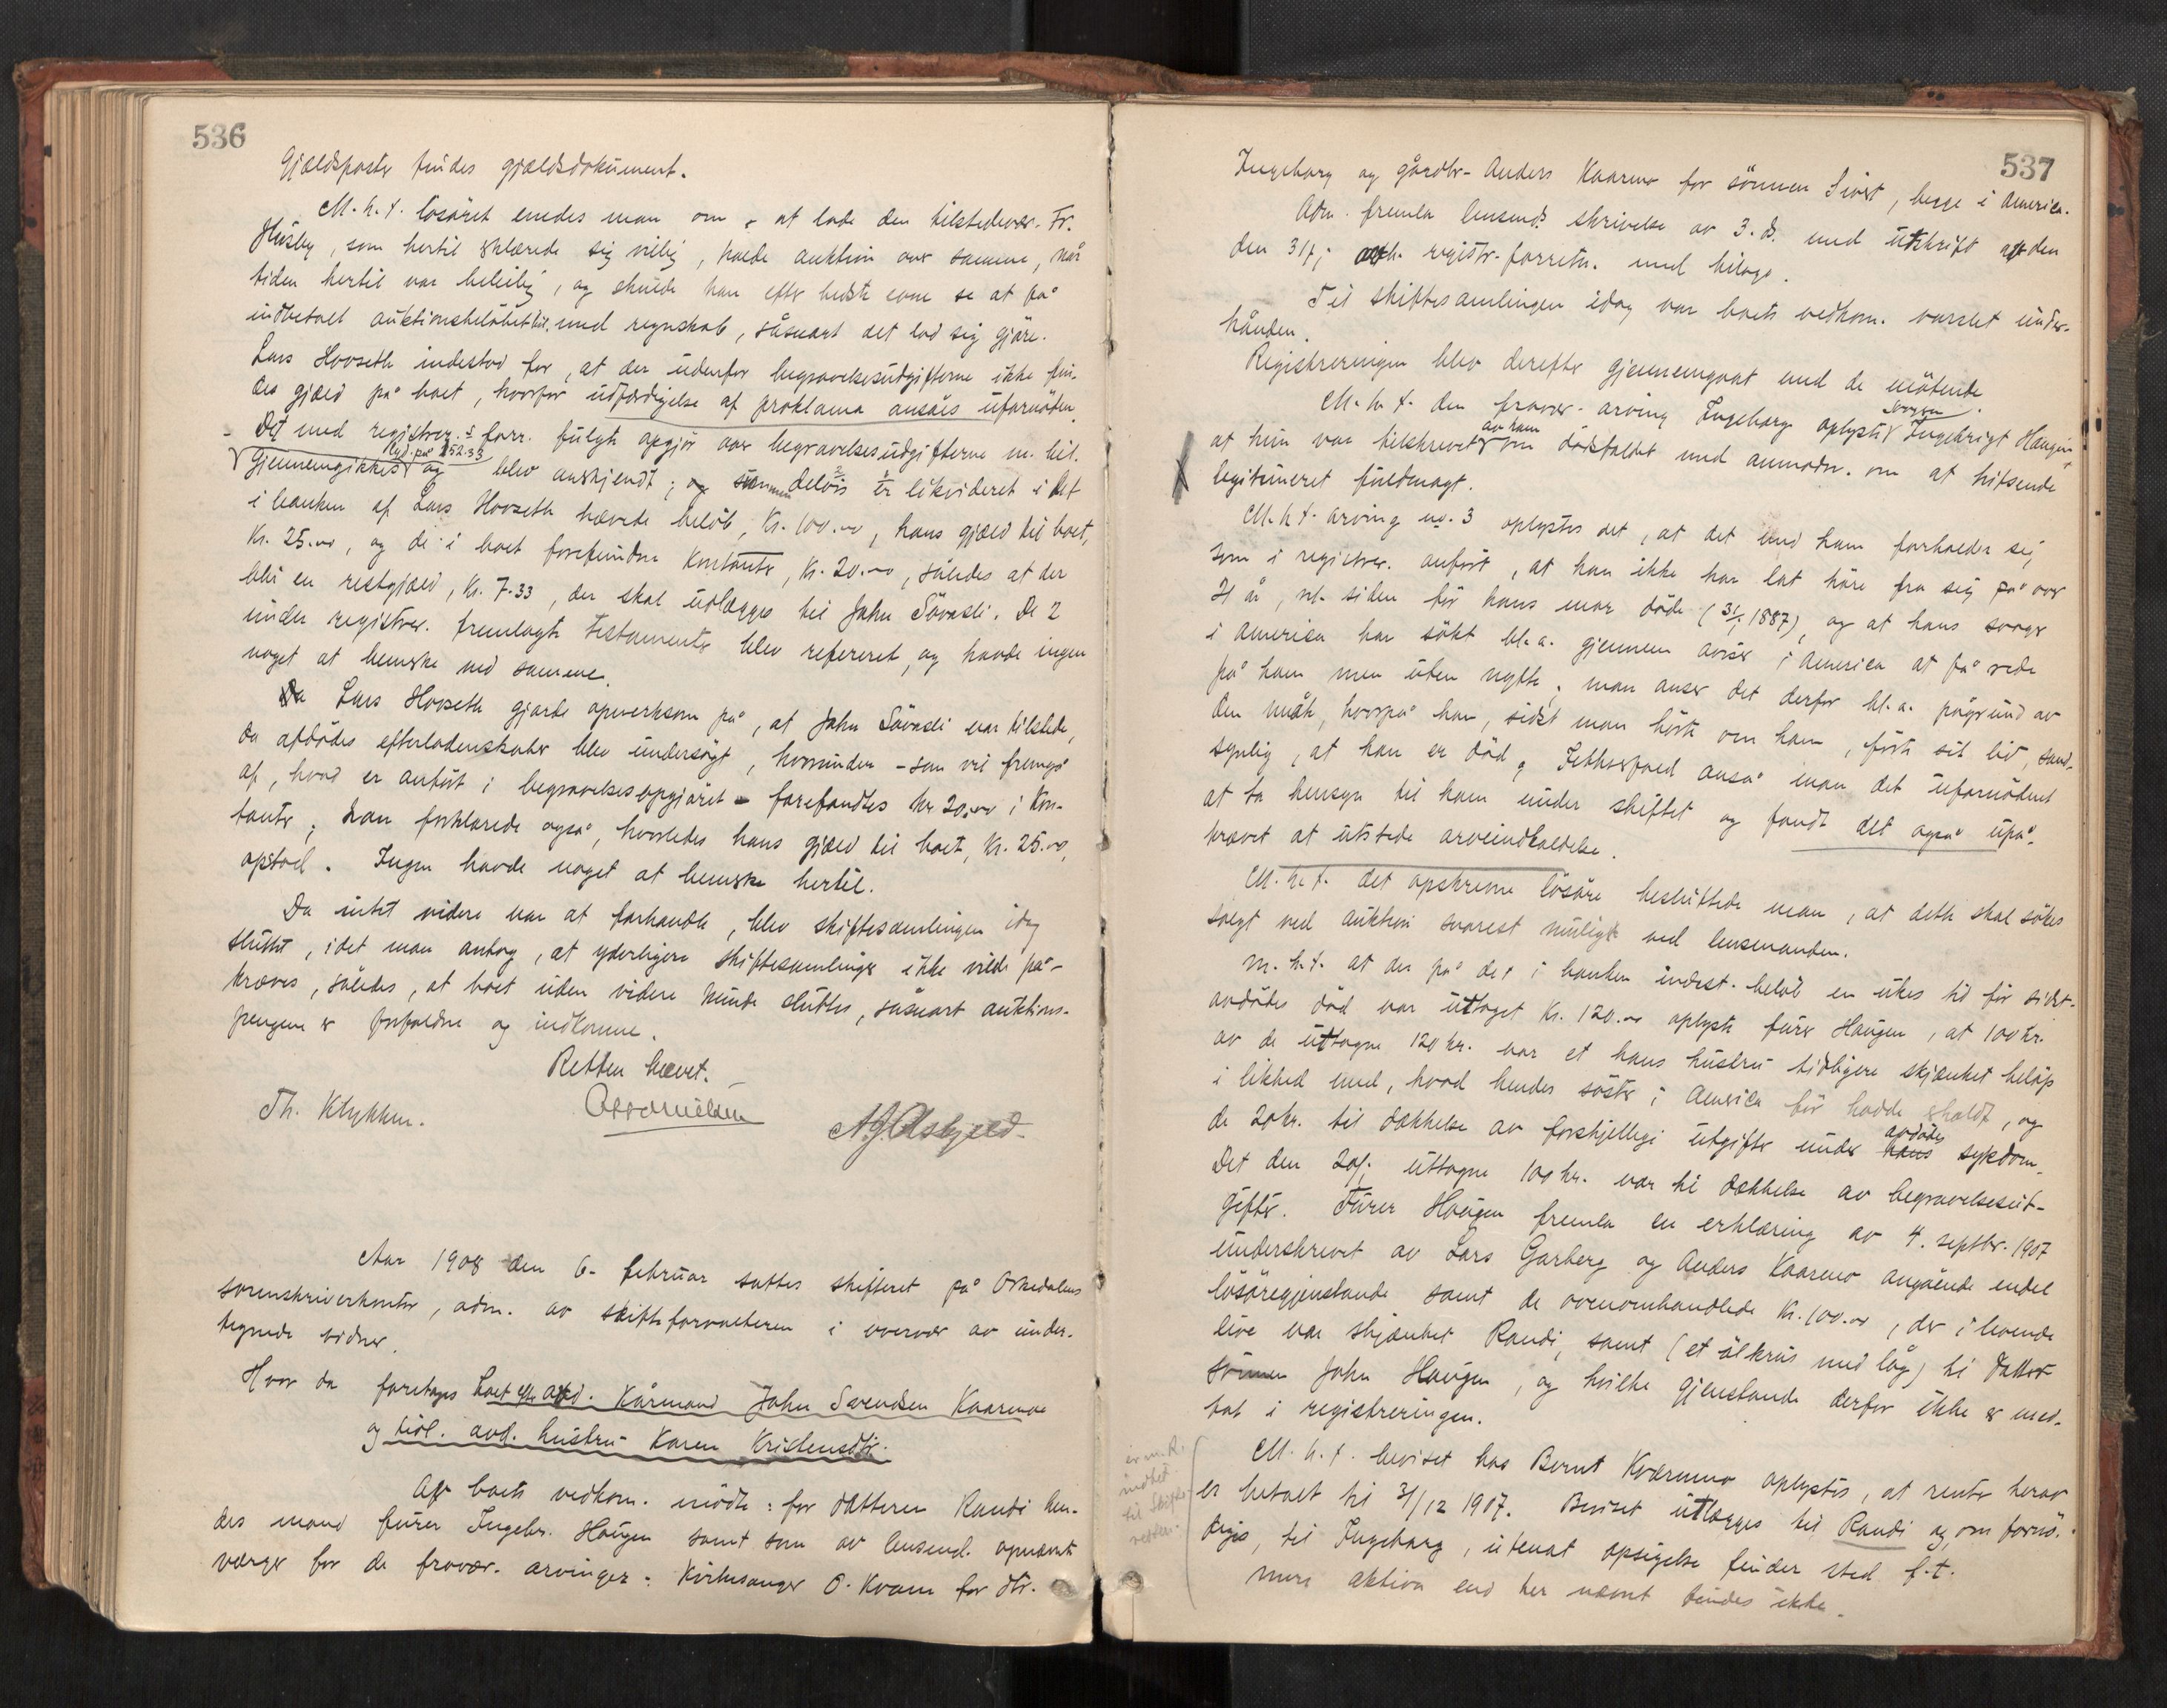 536
Gjældsposter findes gjældsdokument.
M.h.t. løsøret enedes man om at lade den tilstedevær. Fr.
Husby, som hertil erklærede sig villig, holde auktion over samme, når
tiden hertil var beleilig, og skulde han efter bedste evne se at få
indbetalt auktionsbeløbet hit. med regnskab, såsnart det lod sig gjøre.
Lars Hovseth indestod for, at der udenfor begravelsesudgifterne ikke fin-
des gjæld på boet, hvorfor udfærdigelse af proklama ansåes ufornøden
Det med registrer.s forr. fulgte opgjør over begravelsesudgifterne m. bil.
lyd. på 152.33
gjennemgikkes og blev anerkjendt; og summen delvis er likvideret i det
i banken af Lars Hovseth hævede beløb, Kr. 100.00, hans gjæld til boet,
Kr. 25.00, og de i boet forefundne Kontanter, Kr. 20.00, således at der
blir en restgjæld, Kr. 7.33, der skal udlægges til John Sövasli. De 2
under registrer. fremlagte Testamenter blev refereret, og havde ingen
noget at bemerke ved samme.
Da Lars Hovseth gjorde opmerksom på, at John Sövasli var tilstede,
da afdødes efterladenskaber blev undersøgt, hvorunder - som vil fremgå
af, hvad er anført i begravelsesopgjøret - forefandtes kr. 20.00 i Kon-
tanter; han forklarede også, hvorledes hans gjæld til boet, Kr. 25.00,
opstod. Ingen havde noget at bemerke hertil.
Da intet videre var at forhandle, blev skiftesamlingen idag
sluttet, idet man antog, at yderligere skiftesamlinger ikke vilde på-
kræves, således, at boet uden videre kunde sluttes, såsnart auktions-
pengene er forfaldne og indkomne.
Retten hævet.
Th. Klykken.
Aar 1908 den 6. februar sattes skifteret på Orkedalens
sorenskriverkontor, adm. av skifteforvalteren i overvær av under-
tegnede vidner.
Hvor da foretages Boet efter avd. Kårmand John Svendsen Kaarmo
og tidl. avd. hustru Karen Kristensdtr.
Af boets vedkom. mødte: for datteren Randi hen-
des mand furer Ingebr. Haugen samt som av lensmd. opnævnte
værger for de fravær. arvinger: Kirkesanger O. Kvam for dtr.
537
Ingeborg og gårdbr. Anders Kaarmo for sønnen Sivert, begge i America.
Adm. fremla lensmds skrivelse av 3. ds. med utskrift av den
den 31/1 registr.forretn. med bilage.
Til skiftesamlingen idag var boets vedkom. varslet under-
hånden.
Registreringen blev derefter gjennemgaat med de møtende.
M.h.t. den fravær. arving Ingeborg oplyste Ingebrigt Haugen
at hun var tilskrevet av ham om dødsfaldet med anmodn. om at hitsende
legitimeret fuldmagt.
M.h.t. arving no. 3 oplystes det, at det med ham forholder sig,
som i registrer. anført, at han ikke har lat høre fra sig på over
21 år, nl. siden før hans mor døde (31/1 1887), og at hans svoger
i America har søkt bl.a. gjennem aviser i America at få rede
på ham men uten nytte; man anser det derfor bl.a. pågrund av
den måte, hvorpå han, sidst man hørte om ham, førte sit liv, sand-
synlig, at han er død. Ietthvertfald anså man det ufornødent
at ta hensyn til ham under skiftet og fandt det også upå-
krævet at utstede arveindkaldelse.
M.h.t. det opskrevne løsøre besluttede man, at dette skal søkes
solgt ved auktion snarest muligt ved lensmanden.
M.h.t. at der på det i banken indest. beløb en ukes tid før sidst-
avdødes død var uttaget Kr. 120.00 oplyste furer Haugen, at 100 kr.
av de uttagne 120 kr. var et hans hustru tidligere skjænket beløp
i likhed med, hvad hendes søster i America før hadde erholdt, og
de 20 kr. til dækkelse av forskjellige utgifter under avdødes sykdom.
Det den 20/1 uttagne 100 kr. var til dækkelse av begravelsesut-
gifter. Furer Haugen fremla en erklæring av 4. septbr. 1907
underskrevet av Lars Garberg og Anders Kaarmo angående endel
løsøregjenstande samt de ovenomhandlede Kr. 100.00, der i levende
live var skjænket Randi, samt (et ølkrus med låg) til datter
sønnen John Haugen, og hvilke gjenstande derfor ikke er med-
tat i registreringen.
M.h.t. beviset hos Bernt Kværnmo oplystes, at renter herav
er betalt til 31/12 1907. Beviset utlægges til Randi og, om fornø-
diges, til Ingeborg, utenat opsigelse finder sted f.t.
Mere aktiva end her nævnt findes ikke.